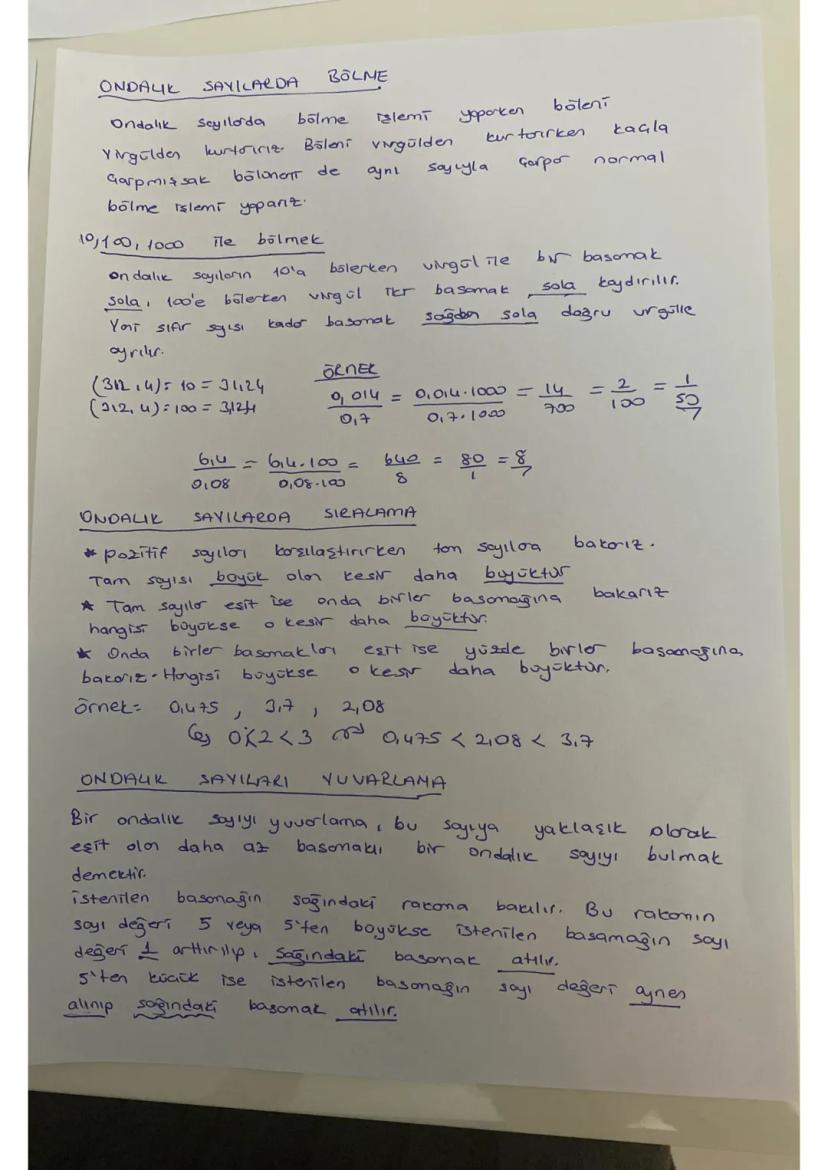 ONDALIK SAYILARDA BÖLME
Ondalık sayılarda bölme işlemi yaparken böleni
virgülden kurtarırız. Böleni virgülden kurtarırken kaçla
çarpmışsak bölüneni de aynı sayıyla çarpar normal
bölme işlemi yaparız.
10, 100, 1000 ile bölmek
Ondalık sayıların 10'a bölerken virgül ile bir basamak
sola, 100'e bölerken virgül iki basamak sola kaydırılır.
Yani sıfır sayısı kadar basamak sağdan sola doğru virgülle
ayrılır.
ÖRNEK
(312,4) ÷ 10 = 31,24
(312,4) ÷ 100 = 3,124
0,014 / 0,7 = 0,014.1000 / 0,7.1000 = 14 / 700 = 2 / 100 = 1 / 50
6,4 / 0,08 = 6,4.100 / 0,08.100 = 640 / 8 = 80 / 1 = 8
ONDALIK SAYILARDA SIRALAMA
* pozitif sayıları karşılaştırırken tam sayılara bakarız.
Tam sayısı büyük olan kesir daha büyüktür
* Tam sayılar eşit ise onda birler basamağına bakarız
hangisi büyükse o kesir daha büyüktür.
* Onda birler basamakları eşit ise yüzde birler basamağına
bakarız. Hangisi büyükse o kesir daha büyüktür.
örnek= 0,475 , 3,7 , 2,08
0<2<3 0,475 < 2,08 < 3,7
ONDALIK SAYILARI YUVARLAMA
Bir ondalık sayıyı yuvarlama, bu sayıya yaklaşık olarak
eşit olan daha az basamaklı bir ondalık sayıyı bulmak
demektir.
istenilen basamağın sağındaki rakama bakılır. Bu rakamın
sayı değeri 5 veya 5'ten büyükse istenilen basamağın sayı
değeri 1 arttırılıp, sağındaki basamak atılır.
5'ten küçük ise istenilen basamağın sayı değeri aynen
alınıp sağındaki basamak atılır.